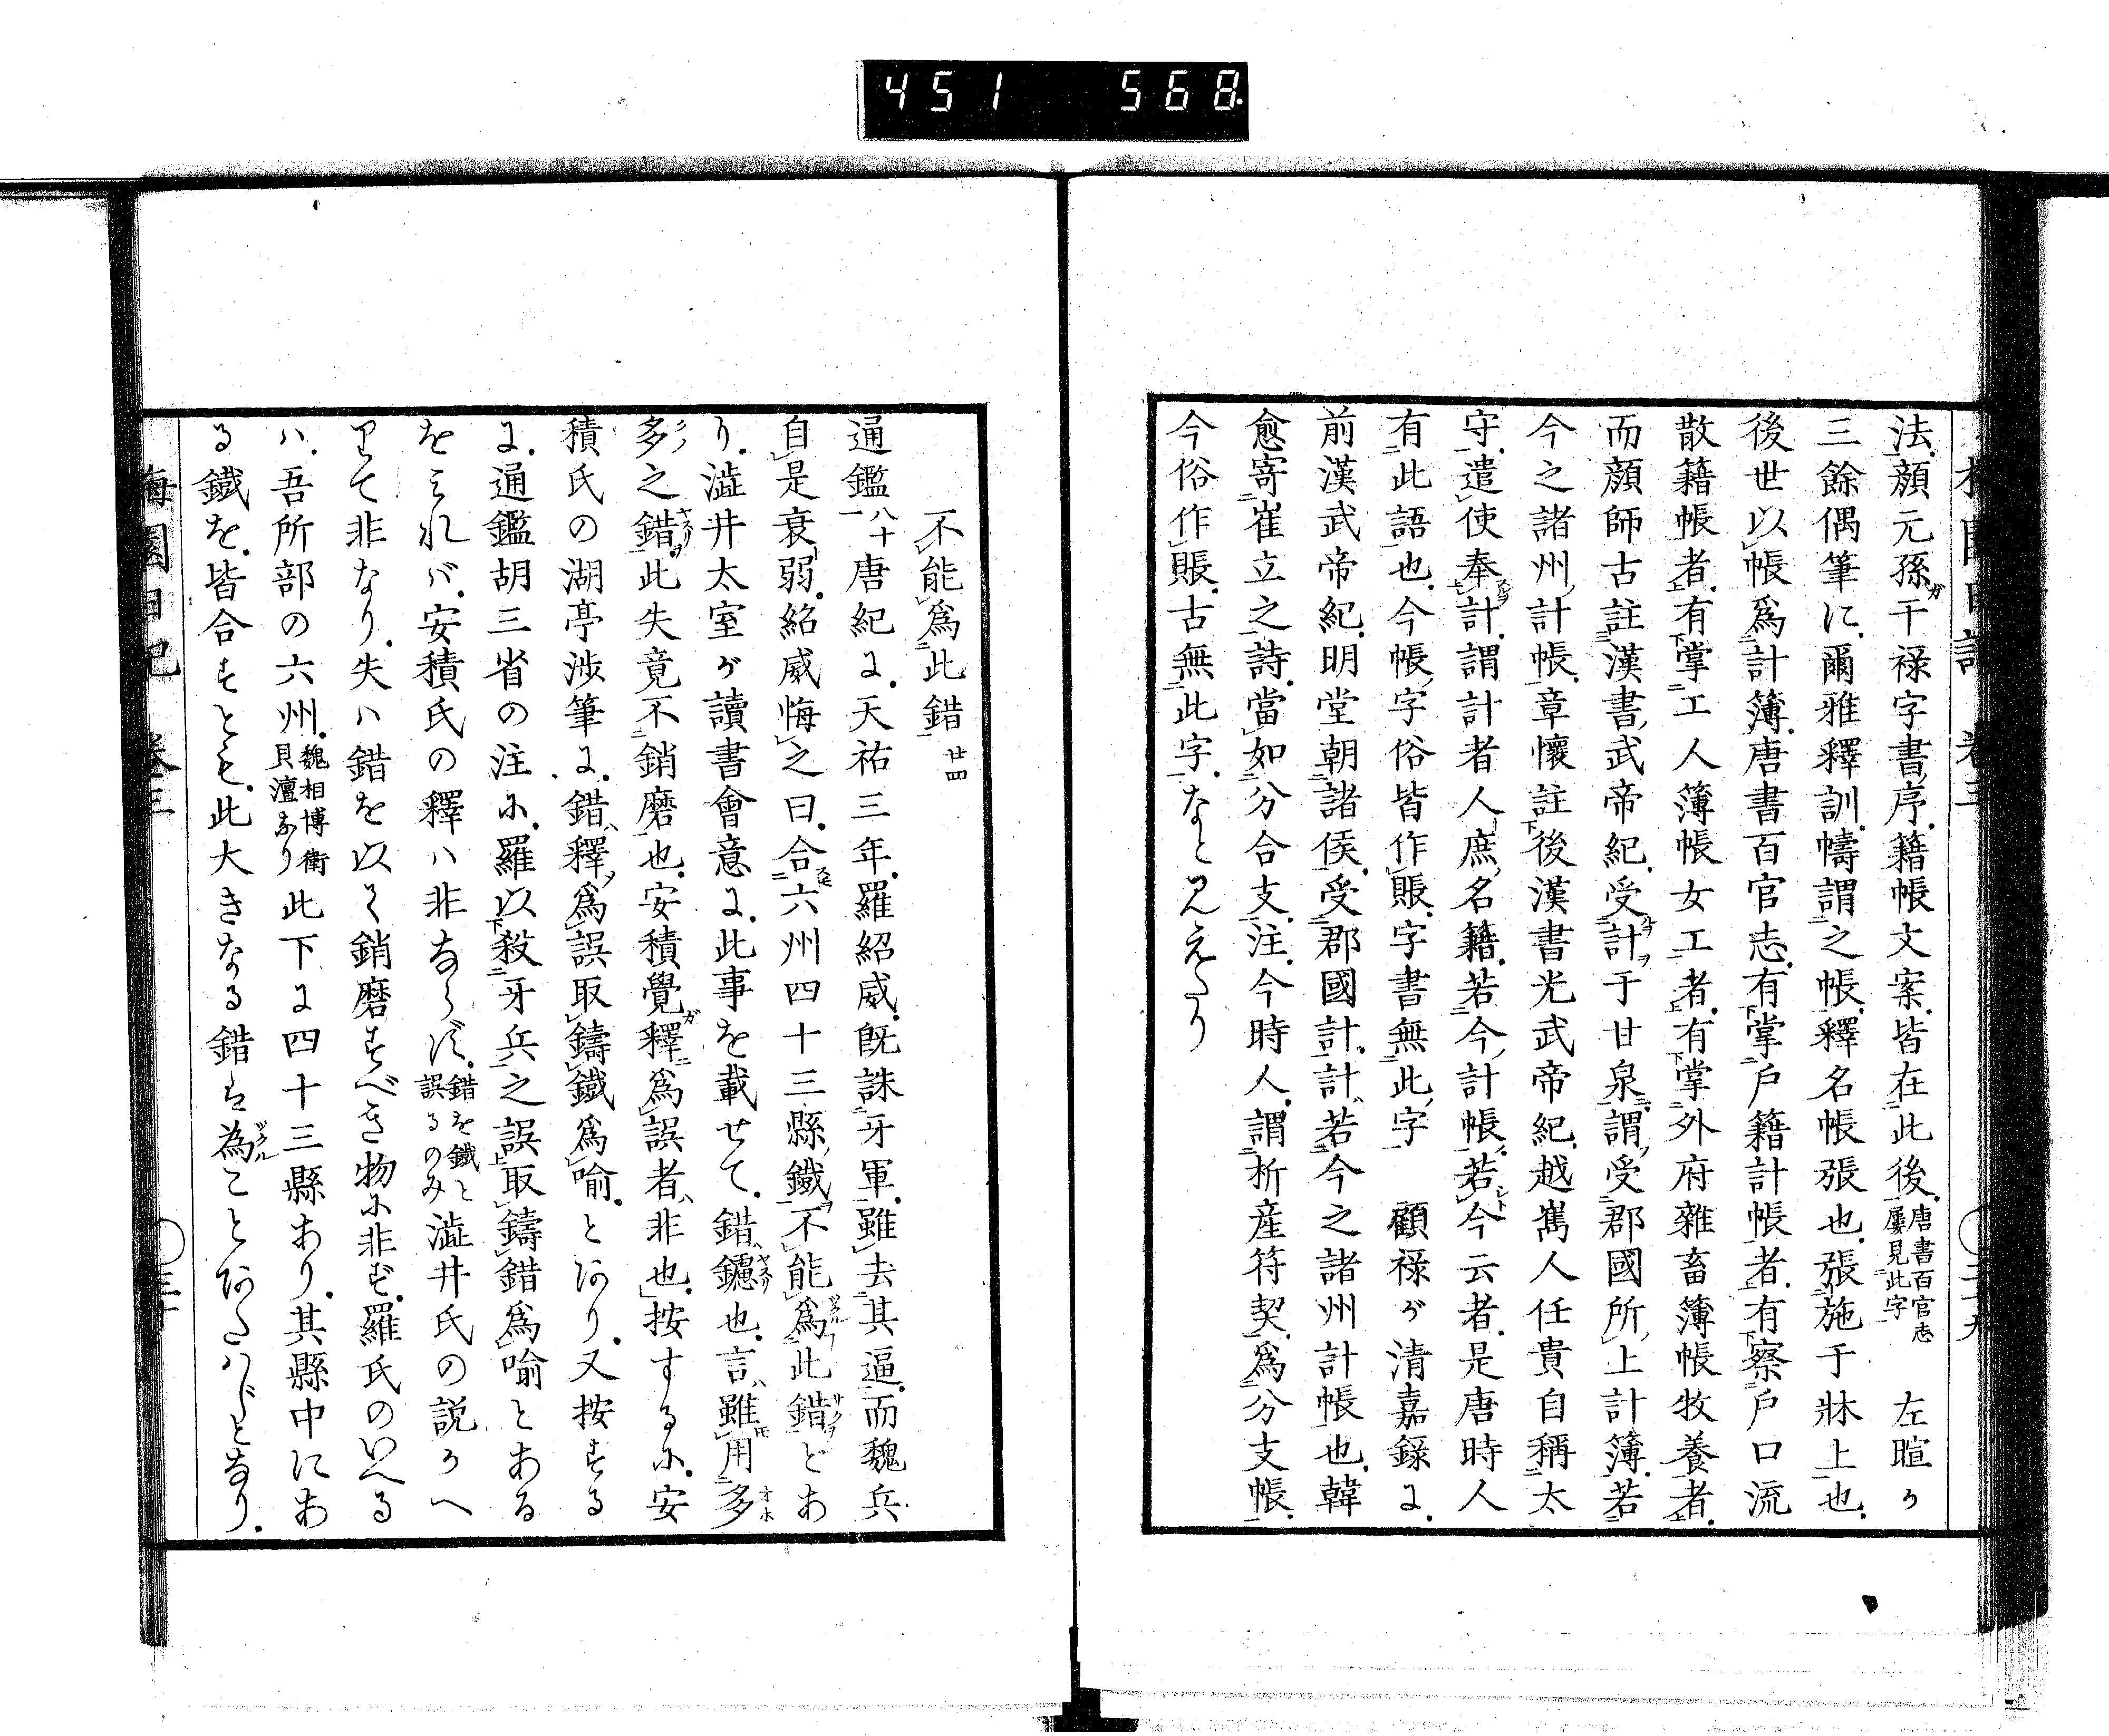 451 568
梅園日記 卷三 ○二十九
法。顔元孫ガ干禄字書序。籍帳文案。皆在此後。唐書百官志屢見此字 左暄か
三餘偶筆に。爾雅釋訓。幬謂之帳。釋名帳張也。張施于牀上也。
後世以帳爲計簿。唐書百官志。有掌戸籍計帳者。有察戸口流
散籍帳者。有掌工人簿帳女工者。有掌外府雜畜簿帳牧養者。
而顔師古註漢書武帝紀。受計于甘泉。謂受郡國所上計簿。若
今之諸州計帳。章懷註後漢書光武帝紀。越嶲人任貴自稱太
守。遣使奉計。謂計者人庶名籍。若今計帳。若今云者。是唐時人
有此語也。今帳字俗皆作賬。字書無此字 顧禄が清嘉録に。
前漢武帝紀。明堂朝諸侯。受郡國計。計若今之諸州計帳也。韓
愈寄崔立之詩。當如分合支。注。今時人。謂析産符契。爲分支帳。
今俗作賬。古無此字。なと見えたり
不能爲此錯 廿四
通鑑八十一唐紀に。天祐三年。羅紹威。既誅牙軍。雖去其逼。而魏兵
自是衰弱。紹威悔之曰。合六州四十三縣鐵。不能爲此錯とあ
り。澁井太室が讀書會意に。此事を載せて。錯鑢也。言雖用多
多之錯。此失竟不銷磨也。安積覺釋爲誤者非也。按するに。安
積氏の湖亭渉筆に。錯釋爲誤取鑄鐵爲喩。とあり。又按ずる
に。通鑑胡三省の注に。羅以殺牙兵之誤取鑄錯爲喩とある
をみれバ。安積氏の釋ハ非ならず。錯を鐵と誤るのみ澁井氏の説かへ
りて非なり。失ハ錯を以て銷磨すべき物に非ず。羅氏のいへる
ハ。吾所部の六州。魏相博衛貝澶なり此下に四十三縣あり。其縣中にあ
る鐵を。皆合すとも。此大きなる錯は為ことあたハじとなり。
梅園日記 卷三 ○三十